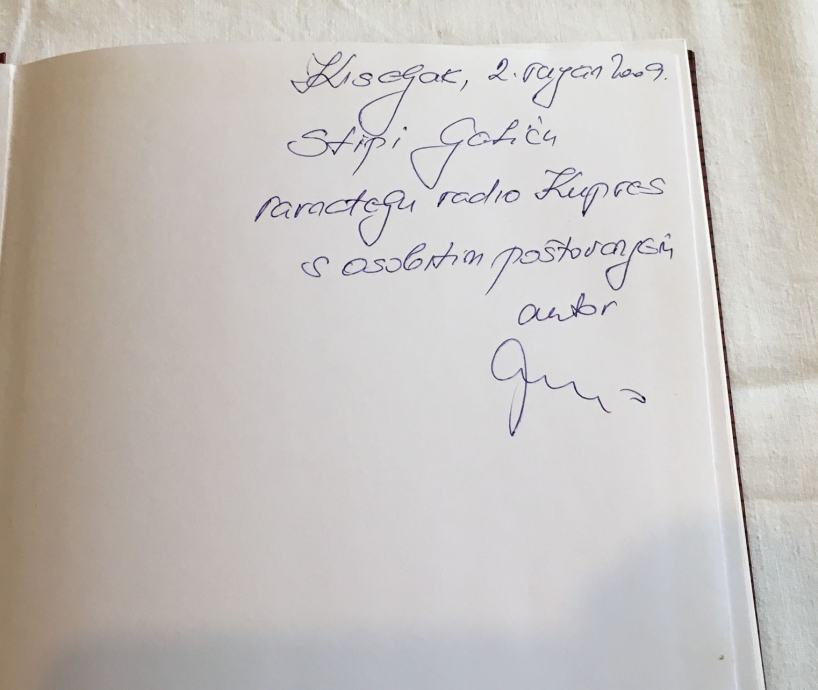 Kiseljak, 2. rujan 2009.
Stipi Gatiću
ravnatelju radio Kupres
s osobitim poštovanjem
autor